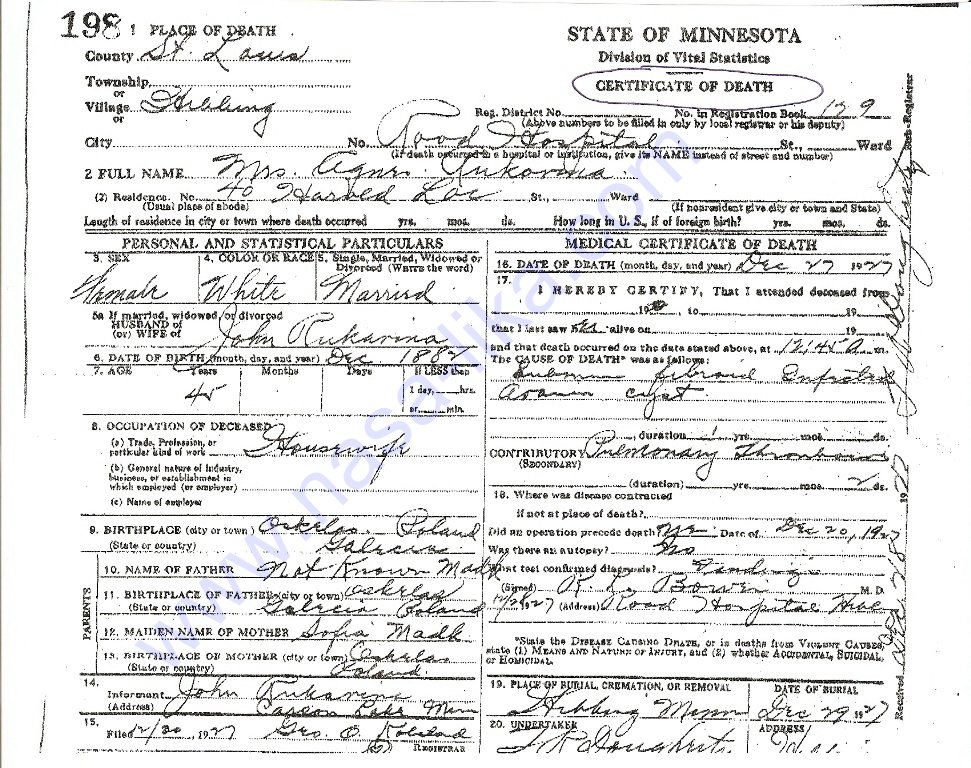 198
1 PLACE OF DEATH
County St. Louis
Township
or
Village Hibbing
or
City
STATE OF MINNESOTA
Division of Vital Statistics
CERTIFICATE OF DEATH
Reg. District No. No. in Registration Book 129
(Above numbers to be filled in only by local registrar or his deputy)
No. Rood Hospital St., Ward
(If death occurred in a hospital or institution, give its NAME instead of street and number)
2 FULL NAME Mrs. Agnes Rukavina
(2) Residence. No. 40 Harold Loc St., Ward
(Usual place of abode) (If nonresident give city or town and State)
Length of residence in city or town where death occurred yrs. mos. ds. How long in U. S., if of foreign birth? yrs. mos. ds.
PERSONAL AND STATISTICAL PARTICULARS
3. SEX 4. COLOR OR RACE 5. Single, Married, Widowed or
Divorced (WRITE the word)
Female White Married
5a If married, widowed, or divorced
HUSBAND of
(or) WIFE of John Rukavina
6. DATE OF BIRTH (month, day, and year) Dec 1882
7. AGE Years Months Days If LESS than
1 day, hrs.
or min.
45
8. OCCUPATION OF DECEASED
(a) Trade, Profession, or
particular kind of work Housewife
(b) General nature of industry,
business, or establishment in
which employed (or employer)
(c) Name of employer
9. BIRTHPLACE (city or town) Poland
(State or country)
PARENTS
10. NAME OF FATHER Not Known Madh
11. BIRTHPLACE OF FATHER (city or town)
(State or country) Poland
12. MAIDEN NAME OF MOTHER Sofia Madh
13. BIRTHPLACE OF MOTHER (city or town)
(State or country) Poland
14.
Informant John Rukavina
(Address) Lake Minn
15.
Filed 12/30, 1927 Geo. O.
REGISTRAR
MEDICAL CERTIFICATE OF DEATH
16. DATE OF DEATH (month, day, and year) Dec 27 1927
17.
I HEREBY CERTIFY, That I attended deceased from
19 , to 19
that I last saw her alive on 19
and that death occurred on the date stated above, at 12:45 A m.
The CAUSE OF DEATH* was as follows:
fibroid Infected
cyst
, duration yrs. mos. ds.
CONTRIBUTORY Pulmonary Thrombosis
(SECONDARY)
(duration) yrs. mos. 2 ds.
18. Where was disease contracted
if not at place of death?
Did an operation precede death? Yes Date of Dec 20, 1927
Was there an autopsy? No
What test confirmed diagnosis? Findings
(Signed) R. L. Bowen M. D.
12/28 1927 (Address) Rood Hospital
*State the DISEASE CAUSING DEATH, or in deaths from VIOLENT CAUSES,
state (1) MEANS AND NATURE OF INJURY, and (2) whether ACCIDENTAL, SUICIDAL,
or HOMICIDAL.
19. PLACE OF BURIAL, CREMATION, OR REMOVAL DATE OF BURIAL
Hibbing Minn Dec 29 1927
20. UNDERTAKER ADDRESS
Dougherty
Received
Sub-Registrar
www.nasalika.com